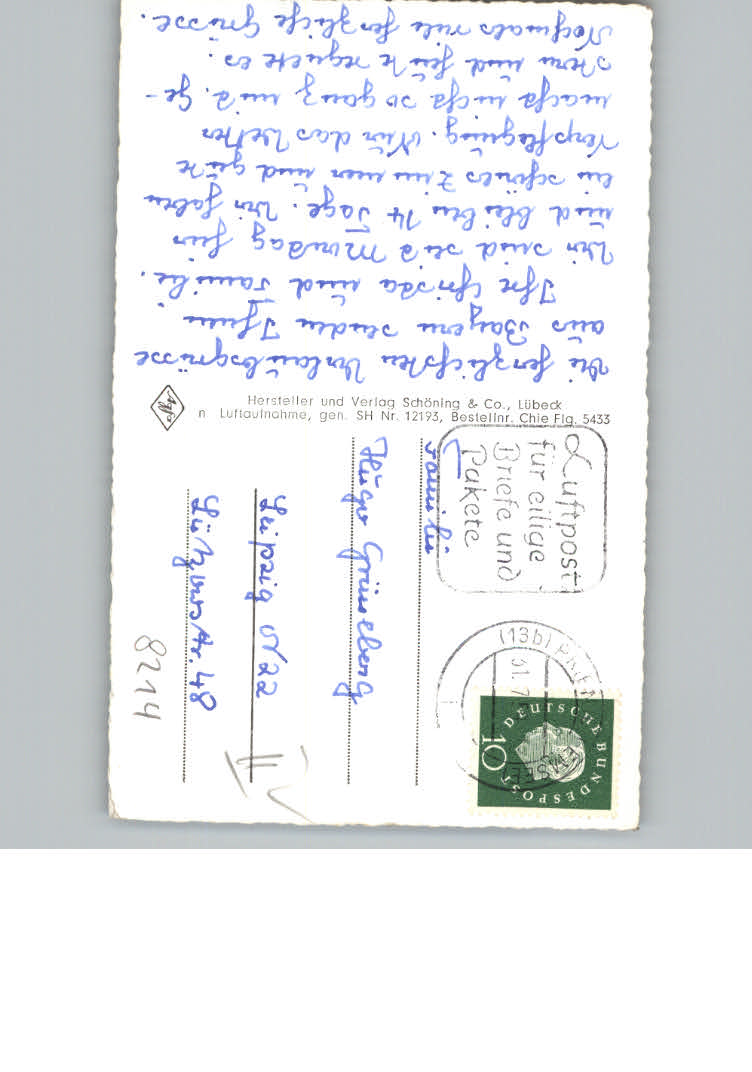 Die herzlichsten Urlaubsgrüsse
aus Bayern senden Ihnen
Ihre Christa und Familie.
Wir sind seit Montag hier
und bleiben 14 Tage. Wir haben
ein schönes Zimmer und gute
Verpflegung. Nur das Wetter
macht nicht so ganz mit. Ge-
stern und heute regnete es.
Nochmals viele herzliche Grüsse.
Hersteller und Verlag Schöning & Co., Lübeck
n Luftaufnahme, gen. SH Nr. 12193, Bestellnr. Chie Flg. 5433
Agfa
Luftpost
für eilige
Briefe und
Pakete
(13b) PRIEN
31.7
EMSEE
DEUTSCHE BUNDESPOST
10
Familie
Hugo Grüneberg
Leipzig N 22
Lützowstr. 48
8214